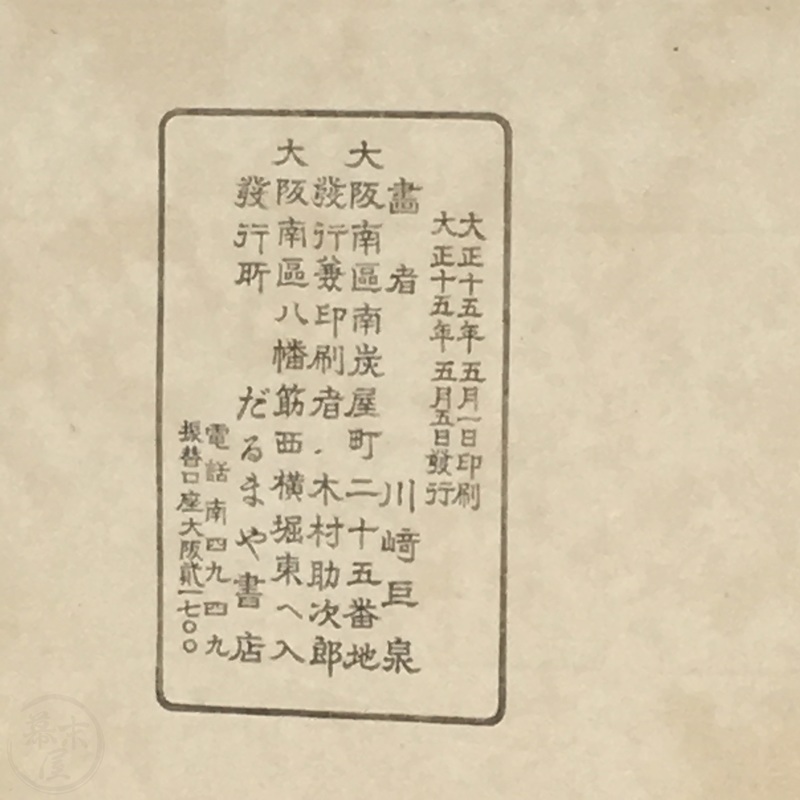 大正十五年五月一日印刷
大正十五年五月五日發行
畫者 川﨑巨泉
大阪南區南炭屋町二十五番地
發行兼印刷者 木村助次郎
大阪南區八幡筋西横堀東へ入
發行所 だるまや書店
電話南四九四九
振替口座大阪貳一七〇〇
幕末屋